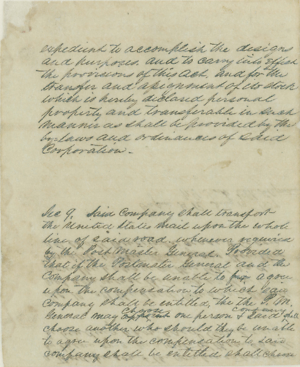 expedient to accomplish the designs
and purposes and to carry into effect
the provisions of this Act and for the
transfer and assignment of its stock
which is hereby declared personal
property and transferable in such
manner as shall be provided by the
by laws and ordinances of said
Corporation.
Sec 9. Said Company shall transport
the United States mail upon the whole
line of said road, whenever required
by the Post Master General. Provided
that if the Postmaster General and the
Company shall be unable to agree
upon the compensation to which said
Company shall be entitled, the P. M.
General may choose one person & said
choose another, who should they be unable
to agree upon the compensation to said
company shall be entitled shall